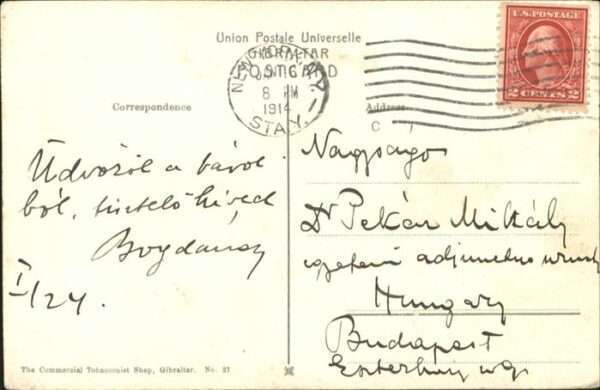 Union Postale Universelle
GIBRALTAR
POSTCARD
NEW YORK, N.Y.
6 PM
1914
STA. Y.
U.S. POSTAGE
2 CENTS 2
Correspondence
Address
Üdvözöl a távol
ból, tisztelő híved
Bogdánsy
I/24.
Nagyságo
Dr Pekár Mihály
egyetemi adjunctus urnak
Hungary
Budapest
Eszterházy
The Commercial Tobacconist Shop, Gibraltar. No. 37